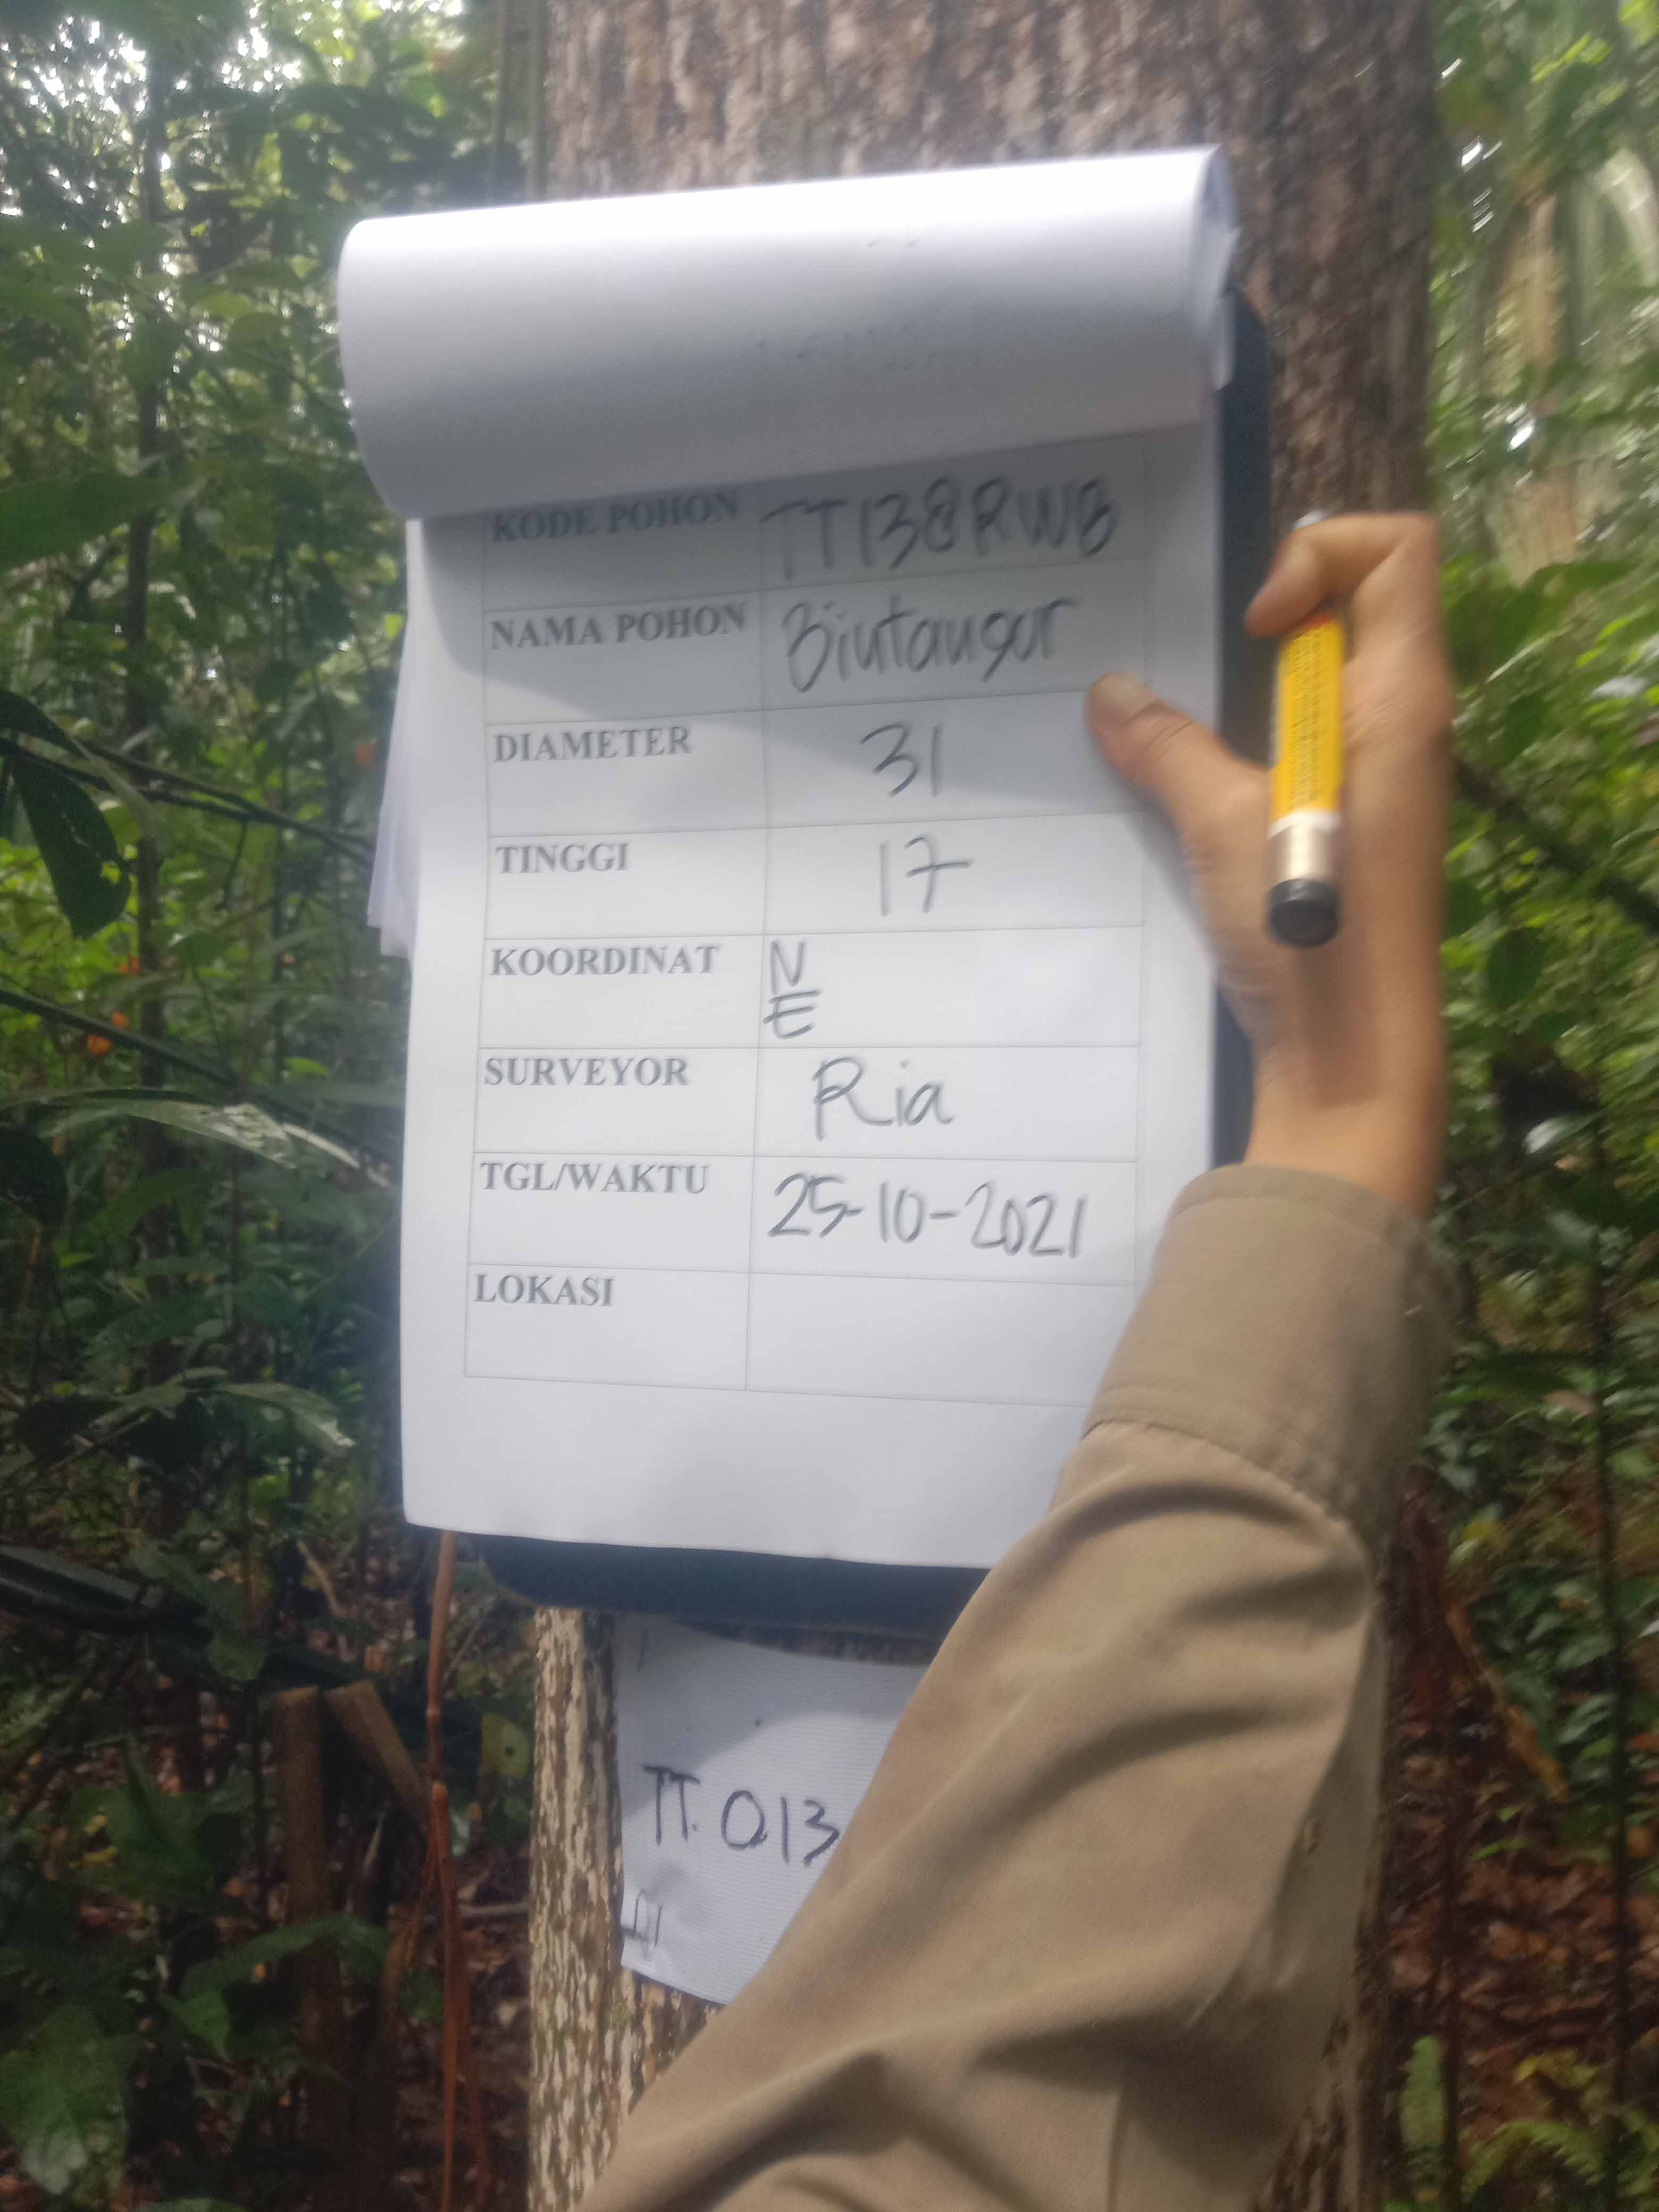 KODE POHON TT13@RWB
NAMA POHON Bintangor
DIAMETER 31
TINGGI 17
KOORDINAT N
E
SURVEYOR Ria
TGL/WAKTU 25-10-2021
LOKASI
TT. 013